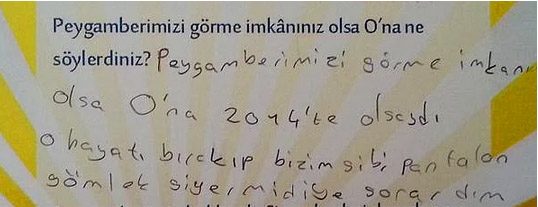 Peygamberimizi görme imkânınız olsa O'na ne
söylerdiniz? Peygamberimizi görme imkanı
olsa O'na 2014'te olsaydı
o hayatı bırakıp bizim gibi pantalon
gömlek giyermidiye sorardım